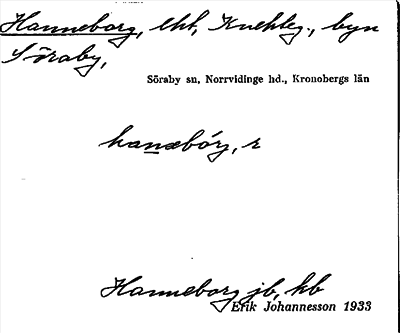 Hanneborg, lht, Knehteg., byn
Söraby,
Söraby sn, Norrvidinge hd., Kronobergs län
hanebórj, r
Hanneborg jb, kb
Erik Johannesson 1933